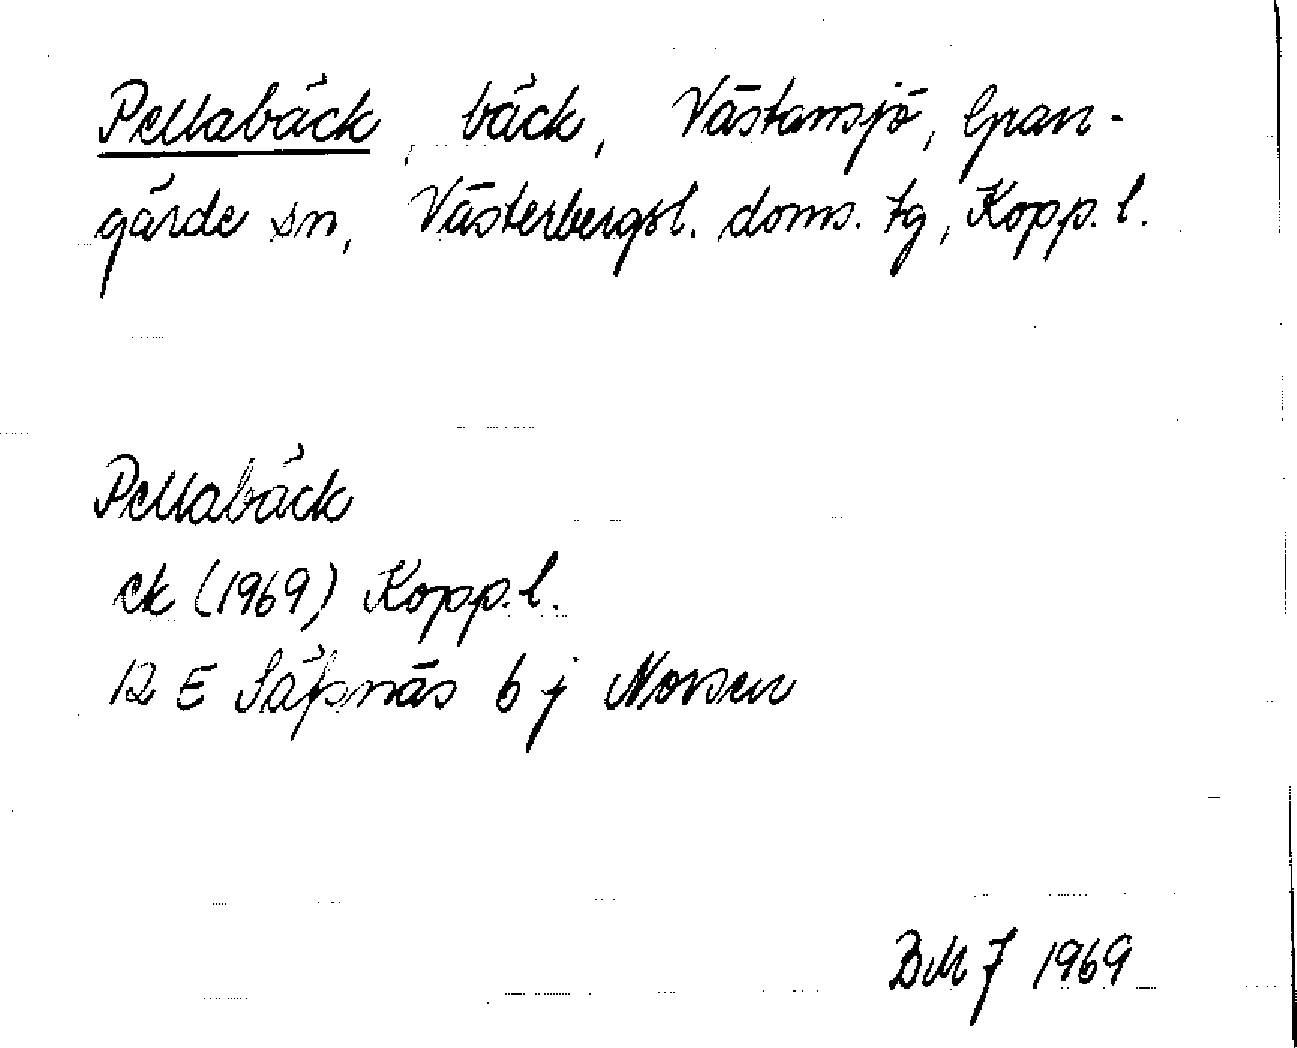 Pellabäck, bäck, Västansjö, Gran-
gärde sn, Västerbergsl. doms. tg, Kopp. l.
Pellabäck
ek (1969) Kopp. l.
12 E Säfsnäs 6 j Norsen
BMJ 1969